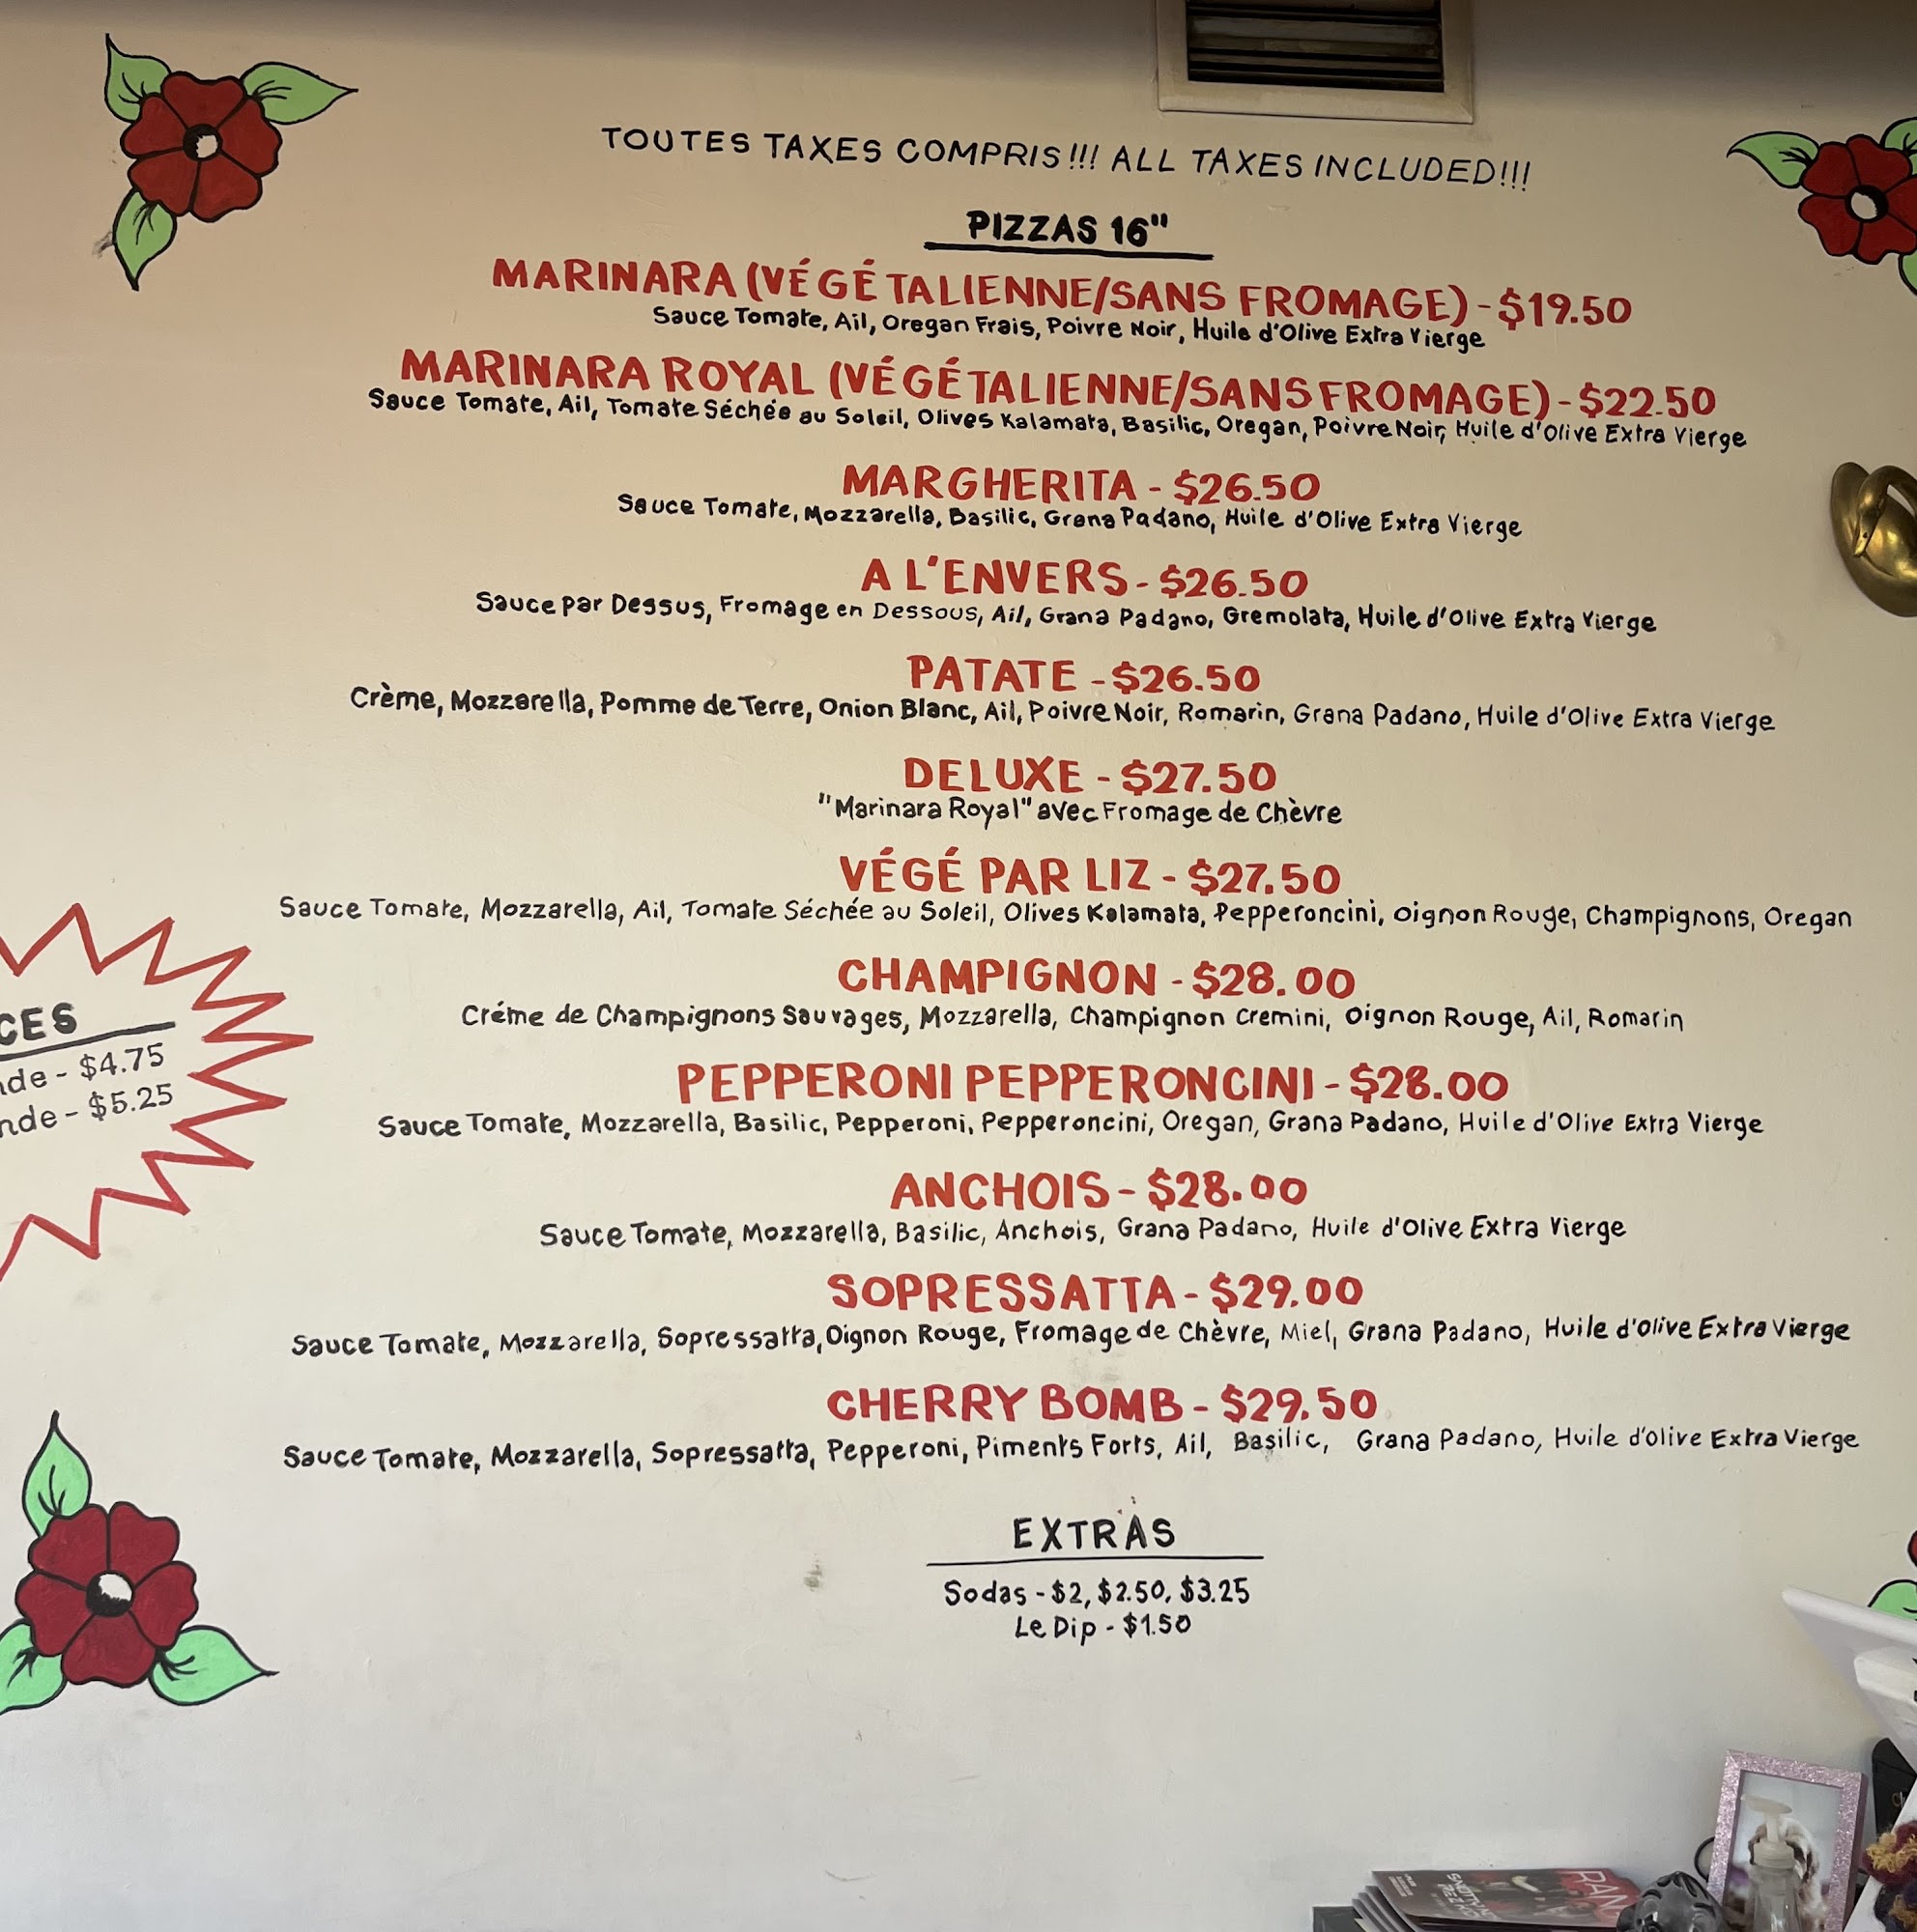 TOUTES TAXES COMPRIS!!! ALL TAXES INCLUDED!!!
PIZZAS 16"
MARINARA (VÉGÉTALIENNE/SANS FROMAGE) - $19.50
Sauce Tomate, Ail, Oregan Frais, Poivre Noir, Huile d'Olive Extra Vierge
MARINARA ROYAL (VÉGÉTALIENNE/SANS FROMAGE) - $22.50
Sauce Tomate, Ail, Tomate Séchée au Soleil, Olives Kalamata, Basilic, Oregan, Poivre Noir, Huile d'Olive Extra Vierge
MARGHERITA - $26.50
Sauce Tomate, Mozzarella, Basilic, Grana Padano, Huile d'Olive Extra Vierge
A L'ENVERS - $26.50
Sauce par Dessus, Fromage en Dessous, Ail, Grana Padano, Gremolata, Huile d'Olive Extra Vierge
PATATE - $26.50
Crème, Mozzarella, Pomme de Terre, Onion Blanc, Ail, Poivre Noir, Romarin, Grana Padano, Huile d'Olive Extra Vierge
DELUXE - $27.50
"Marinara Royal" avec Fromage de Chèvre
VÉGÉ PAR LIZ - $27.50
Sauce Tomate, Mozzarella, Ail, Tomate Séchée au Soleil, Olives Kalamata, Pepperoncini, Oignon Rouge, Champignons, Oregan
CHAMPIGNON - $28.00
Créme de Champignons Sauvages, Mozzarella, Champignon Cremini, Oignon Rouge, Ail, Romarin
PEPPERONI PEPPERONCINI - $28.00
Sauce Tomate, Mozzarella, Basilic, Pepperoni, Pepperoncini, Oregan, Grana Padano, Huile d'Olive Extra Vierge
ANCHOIS - $28.00
Sauce Tomate, Mozzarella, Basilic, Anchois, Grana Padano, Huile d'Olive Extra Vierge
SOPRESSATTA - $29.00
Sauce Tomate, Mozzarella, Sopressatta, Oignon Rouge, Fromage de Chèvre, Miel, Grana Padano, Huile d'Olive Extra Vierge
CHERRY BOMB - $29.50
Sauce Tomate, Mozzarella, Sopressatta, Pepperoni, Piments Forts, Ail, Basilic, Grana Padano, Huile d'Olive Extra Vierge
EXTRAS
Sodas - $2, $2.50, $3.25
Le Dip - $1.50
CES
de - $4.75
nde - $5.25
RAN